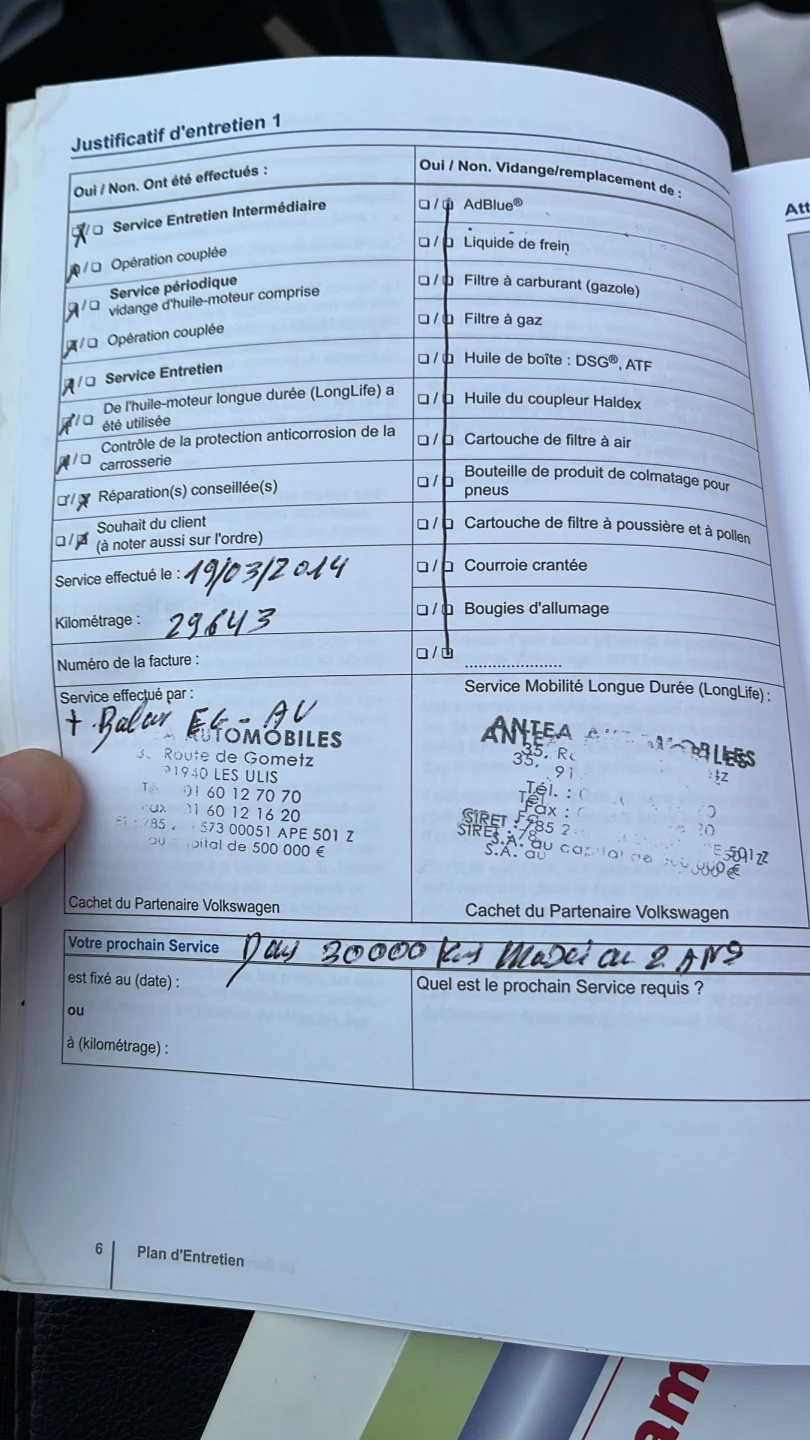 Justificatif d'entretien 1
Oui / Non. Ont été effectués :
Service Entretien Intermédiaire
Opération couplée
Service périodique
vidange d'huile-moteur comprise
Opération couplée
Service Entretien
De l'huile-moteur longue durée (LongLife) a
été utilisée
Contrôle de la protection anticorrosion de la
carrosserie
Réparation(s) conseillée(s)
Souhait du client
(à noter aussi sur l'ordre)
Service effectué le : 19/03/2014
Kilométrage : 29643
Numéro de la facture :
Service effectué par :
AUTOMOBILES
Route de Gometz
LES ULIS
01 60 12 70 70
01 60 12 16 20
573 00051 APE 501 Z
au capital de 500 000 €
Cachet du Partenaire Volkswagen
Oui / Non. Vidange/remplacement de :
AdBlue®
Liquide de frein
Filtre à carburant (gazole)
Filtre à gaz
Huile de boîte : DSG®, ATF
Huile du coupleur Haldex
Cartouche de filtre à air
Bouteille de produit de colmatage pour
pneus
Cartouche de filtre à poussière et à pollen
Courroie crantée
Bougies d'allumage
....................
Service Mobilité Longue Durée (LongLife) :
ANTEA
35,
Tél. :
Fax :
SIRET :
S.A. au capital de
Cachet du Partenaire Volkswagen
Votre prochain Service 30000 2 ANS
est fixé au (date) :
ou
à (kilométrage) :
Quel est le prochain Service requis ?
6 Plan d'Entretien
Att
am